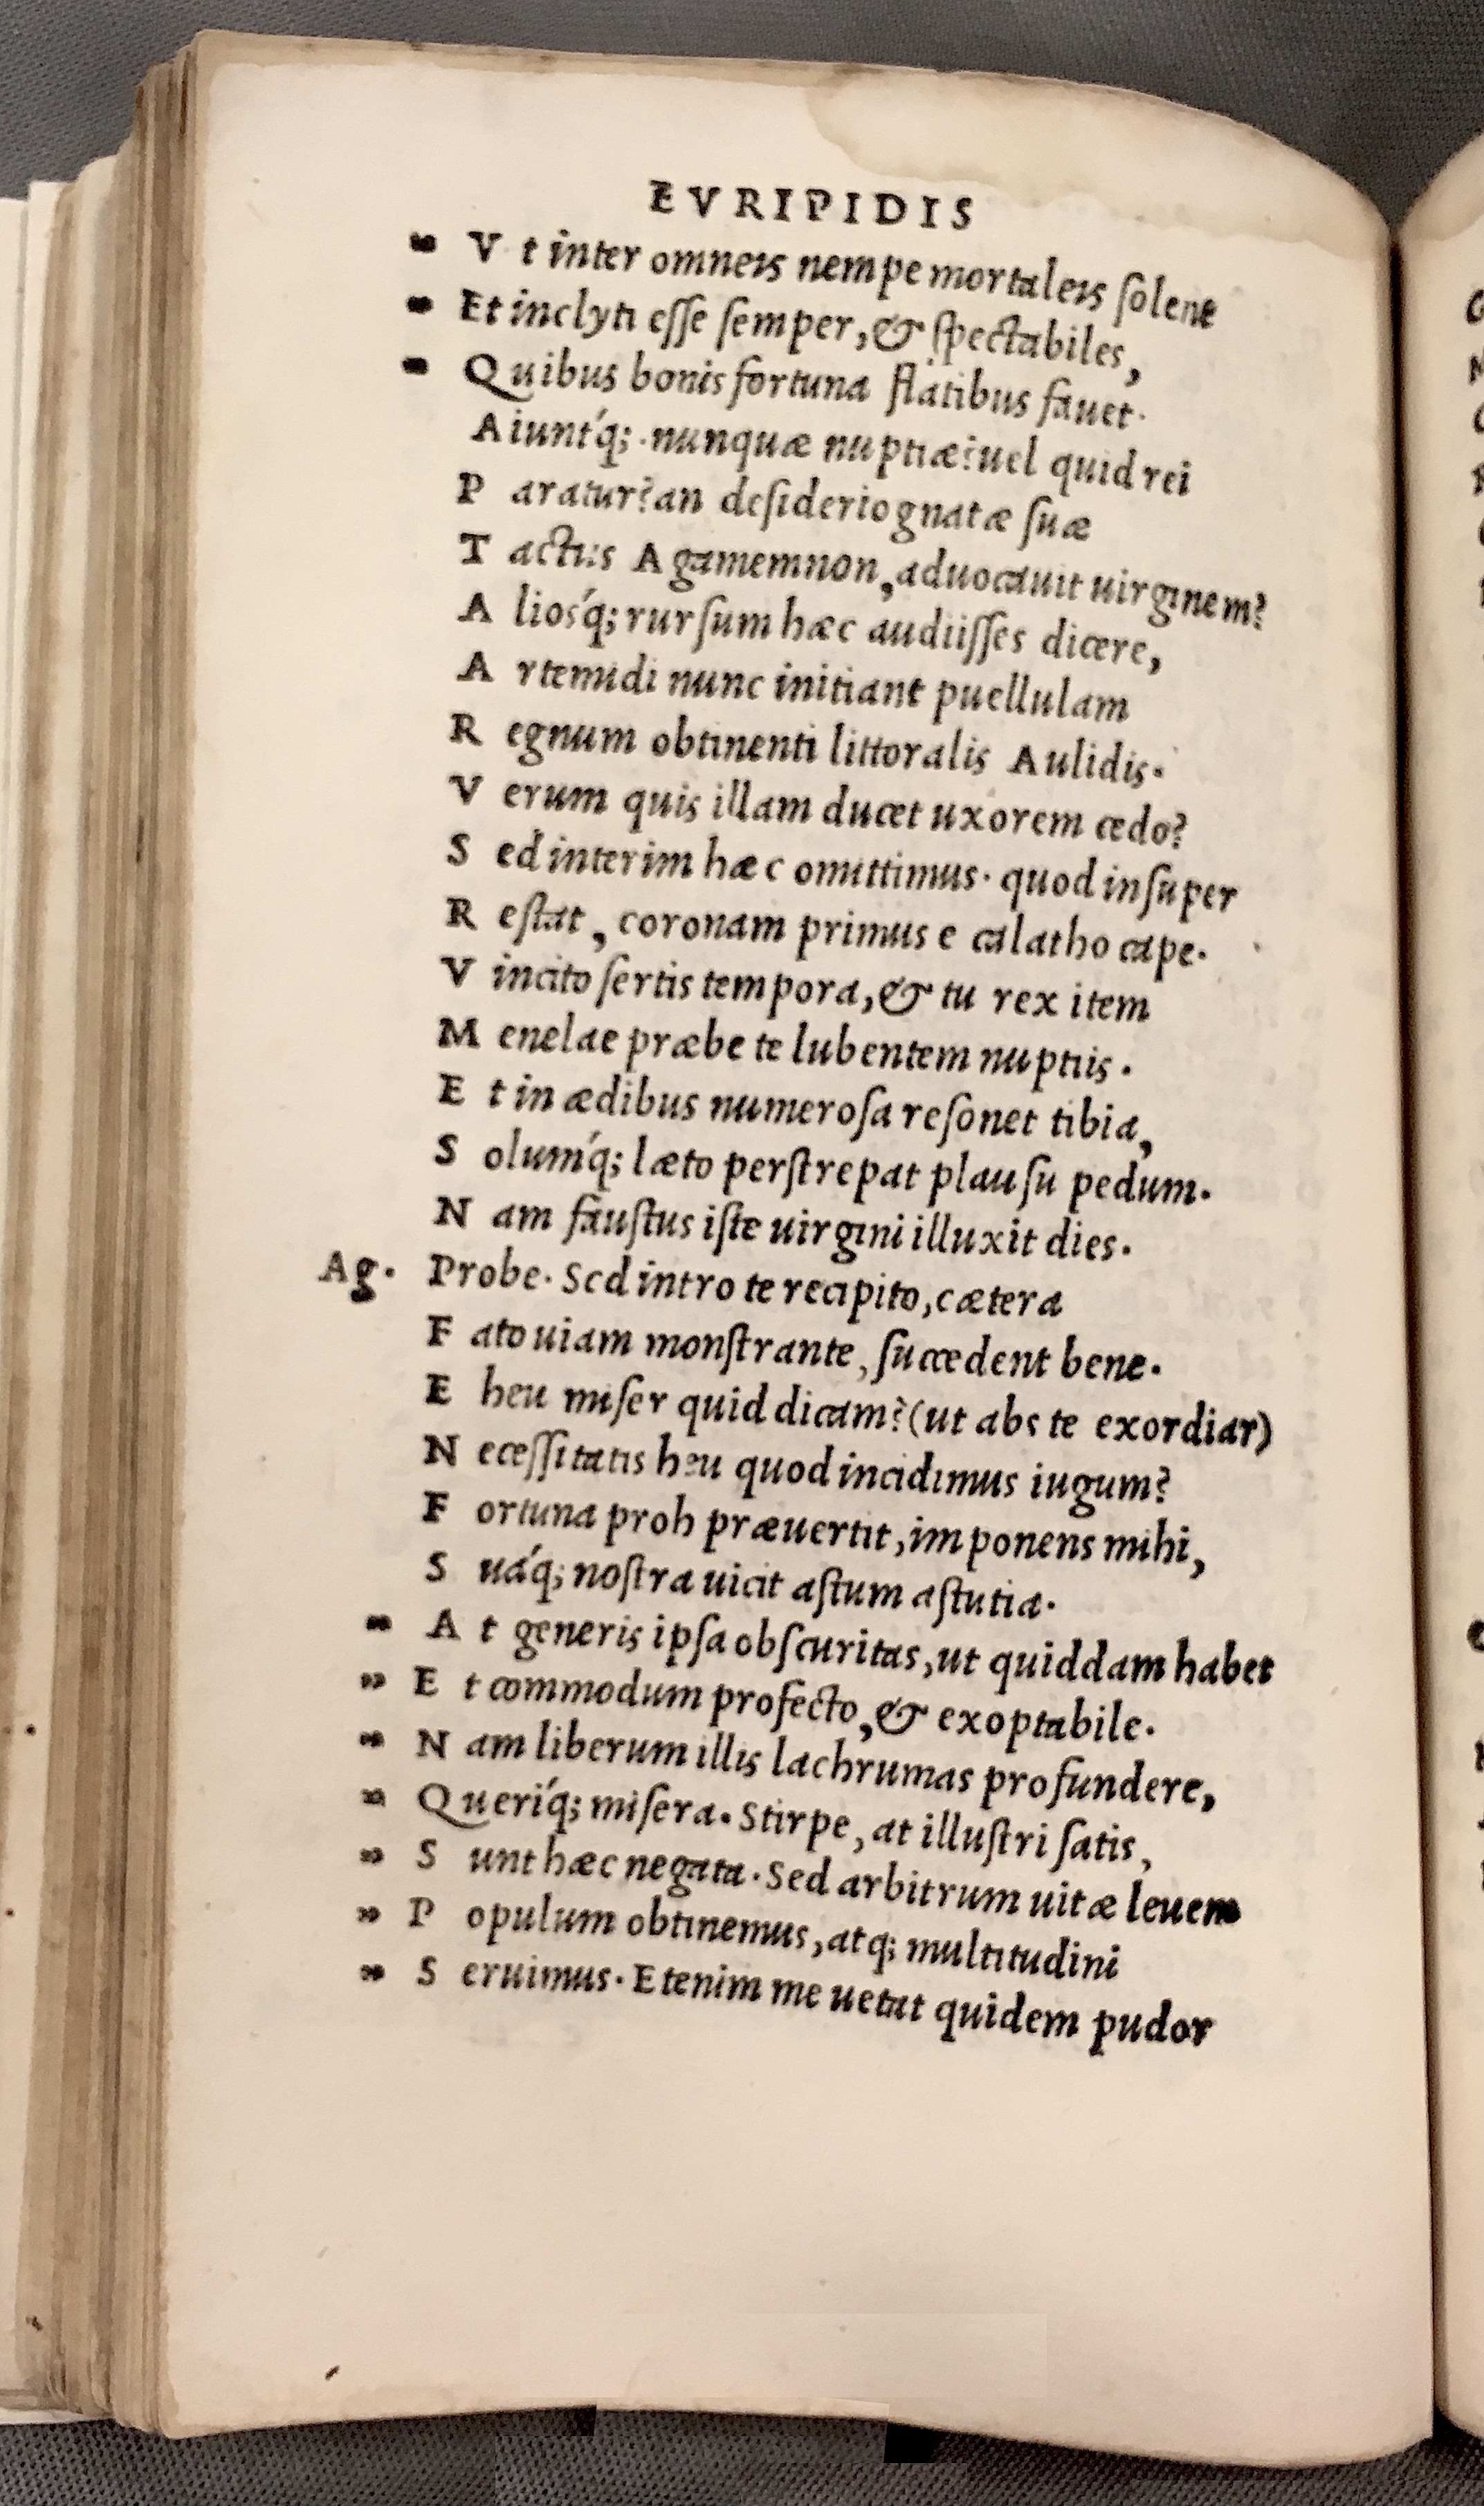 EVRIPIDIS
" V t inter omneis nempe mortaleis ſolent
" Et inclyti eſſe ſemper, & ſpectabiles,
" Quibus bonis fortuna flatibus fauet.
Aiunt́q; nunquæ nuptiæ? uel quid rei
P aratur? an deſiderio gnatæ ſuæ
T actus Agamemnon, aduocauit uirginem?
A lioś q; rurſum hæc audiiſſes dicere,
A rtemidi nunc initiant puellulam
R egnum obtinenti littoralis Aulidis.
V erum quis illam ducet uxorem cedo?
S ed interim hæc omittimus. quod inſuper
R eſtat, coronam primus e calatho cape.
V incito ſertis tempora, & tu rex item
M enelae præbe te lubentem nuptiis.
E t in ædibus numeroſa reſonet tibia,
S oluḿq; læto perſtrepat plauſu pedum.
N am fauſtus iſte uirgini illuxit dies.
Ag. Probe. Sed intro te recipito, cætera
F ato uiam monſtrante, ſuccedent bene.
E heu miſer quid dicam? (ut abs te exordiar)
N eceſſitatis heu quod incidimus iugum?
F ortuna proh præuertit, imponens mihi,
S uá q; noſtra uicit aſtum aſtutia.
" A t generis ipſa obſcuritas, ut quiddam habet
" E t commodum profecto, & exoptabile.
" N am liberum illis lachrumas profundere,
" Querí q; miſera. Stirpe, at illuſtri ſatis,
" S unt hæc negata. Sed arbitrum uitæ leuem
" P opulum obtinemus, atq; multitudini
" S eruimus. Etenim me uetat quidem pudor